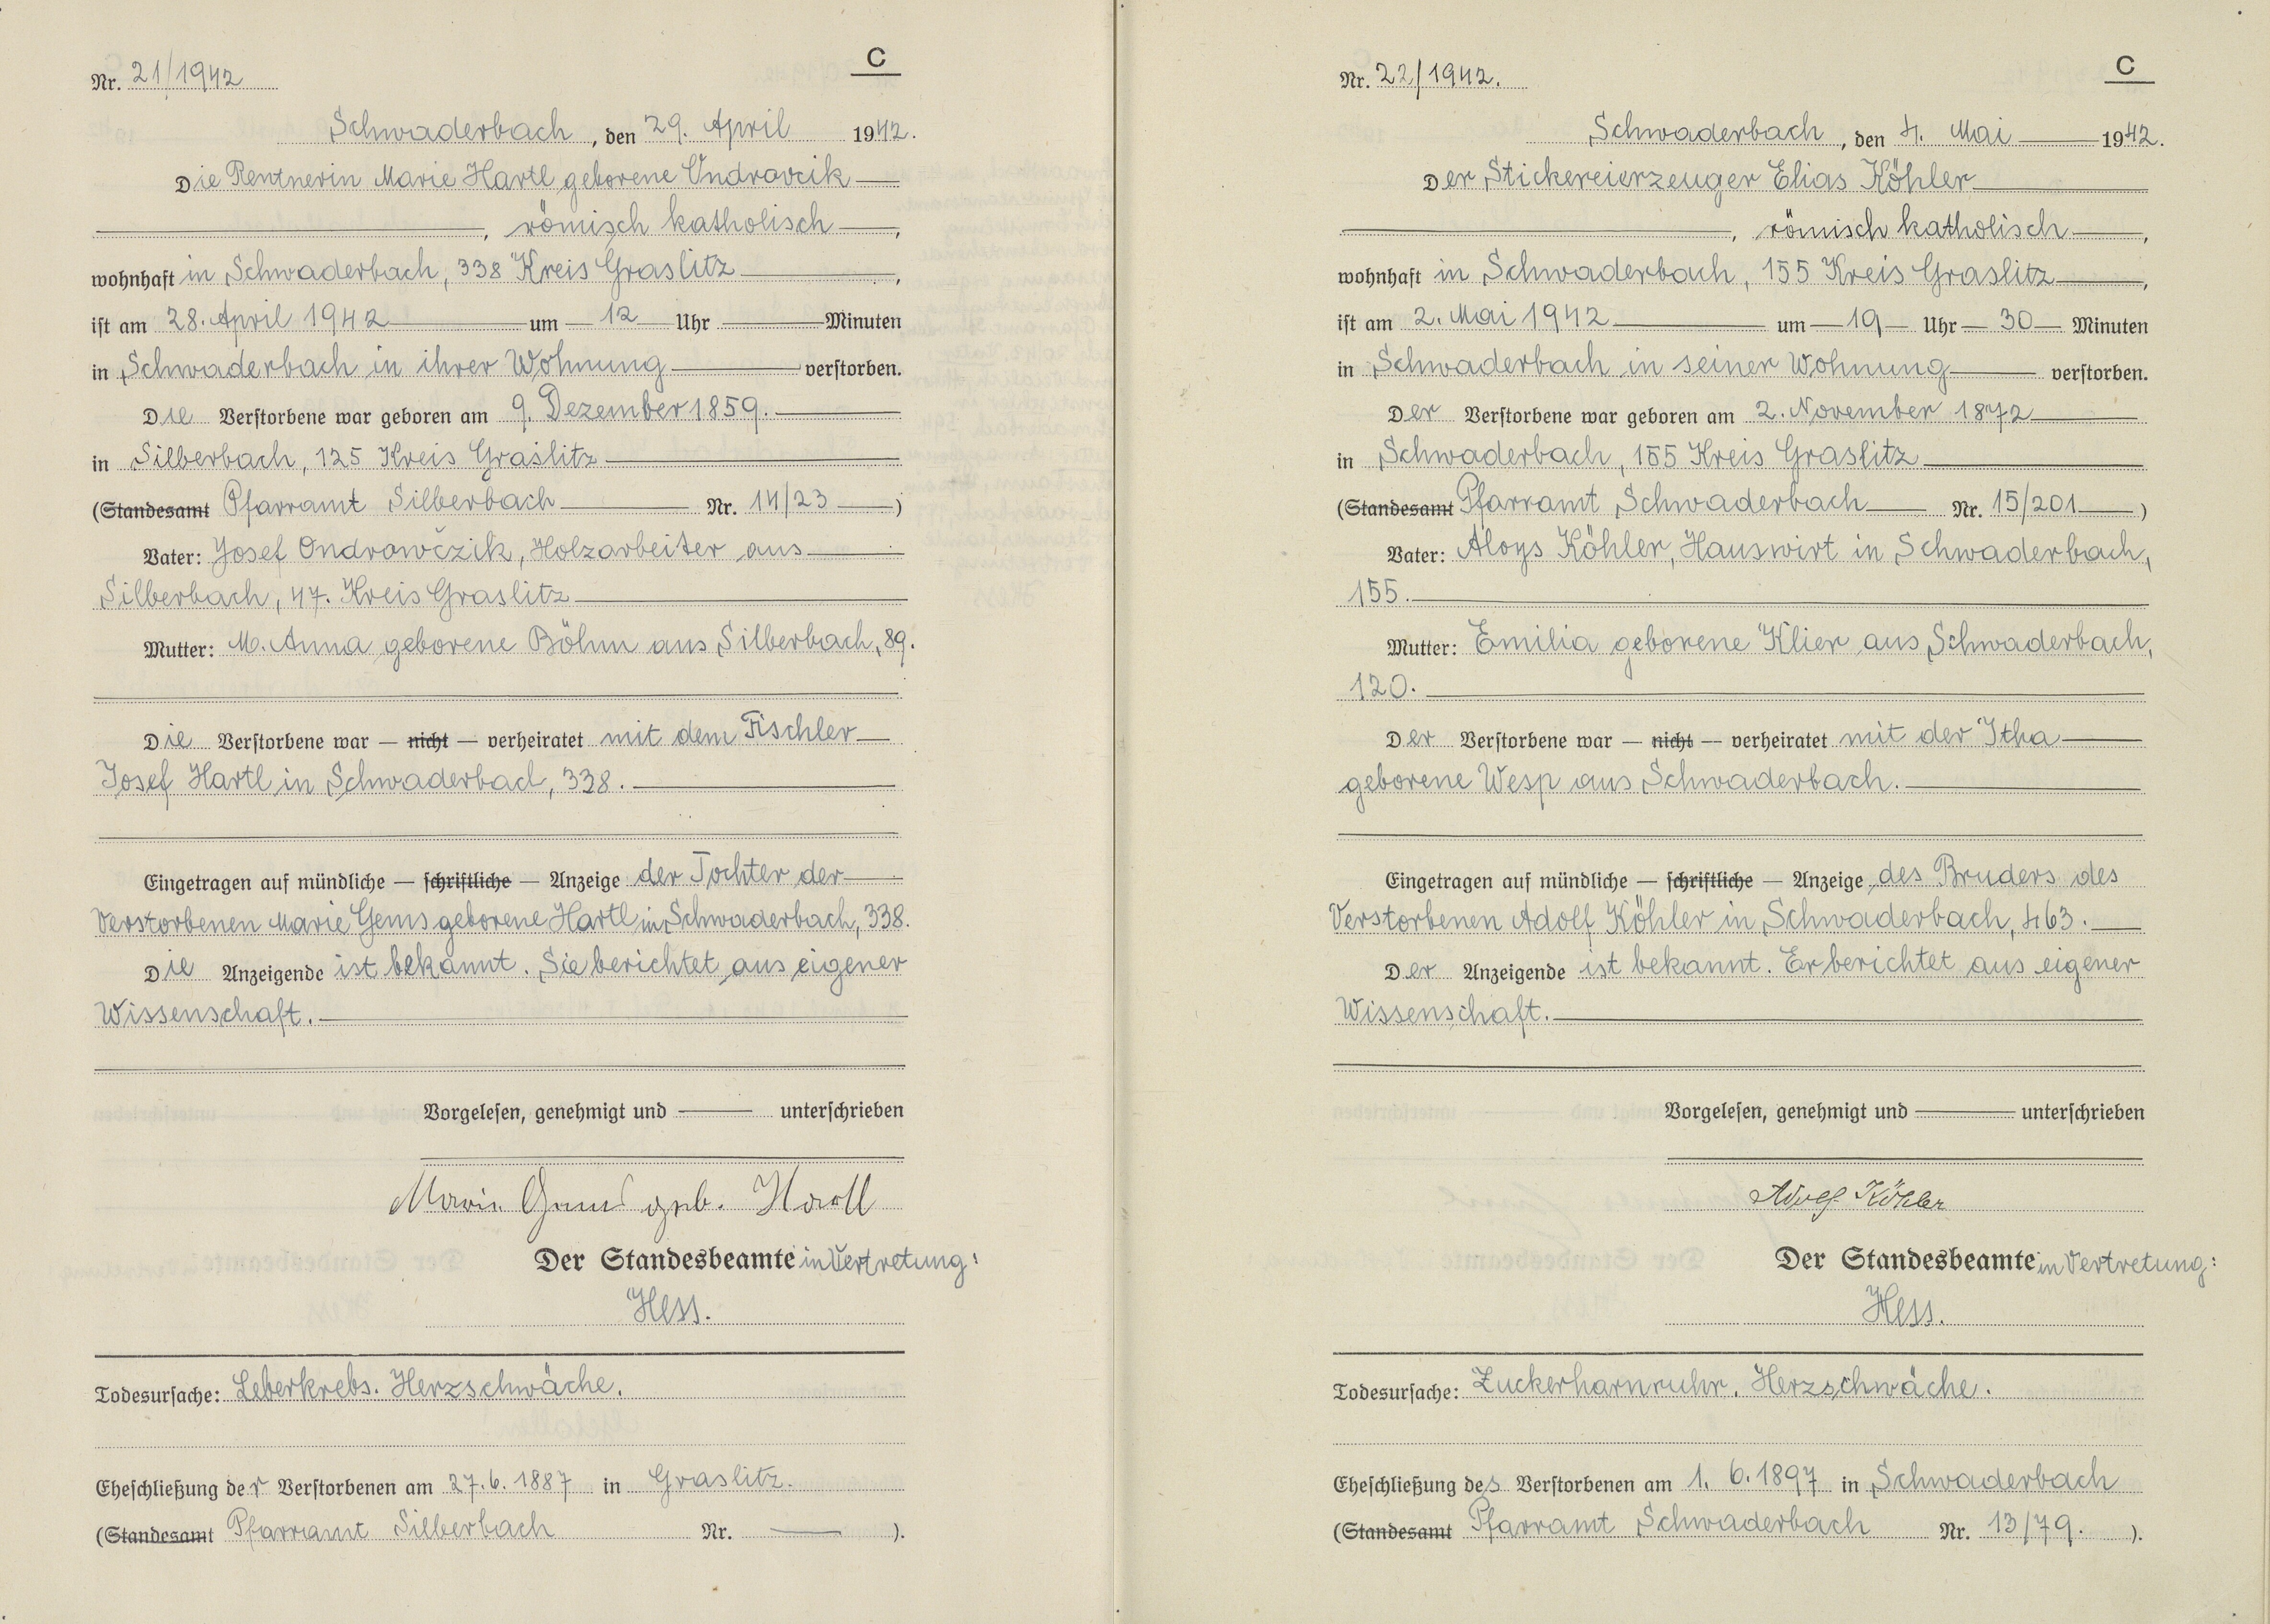 C
Nr. 21/1942
Schwaderbach, den 29. April 1942.
Die Rentnerin Marie Hartl geborene Ondravcik
, römisch katholisch,
wohnhaft in Schwaderbach, 338 Kreis Graslitz,
ist am 28. April 1942 um 12 Uhr Minuten
in Schwaderbach in ihrer Wohnung verstorben.
Die Verstorbene war geboren am 9. Dezember 1859.
in Silberbach, 125 Kreis Graslitz
(Standesamt Pfarramt Silberbach Nr. 14/23)
Vater: Josef Ondrowčzik, Holzarbeiter aus
Silberbach, 47. Kreis Graslitz
Mutter: M. Anna geborene Böhm aus Silberbach, 89.
Die Verstorbene war — nicht — verheiratet mit dem Tischler
Josef Hartl in Schwaderbach, 338.
Eingetragen auf mündliche — schriftliche — Anzeige der Tochter der
Verstorbenen Marie Gems geborene Hartl in Schwaderbach, 338.
Die Anzeigende ist bekannt. Sie berichtet aus eigener
Wissenschaft.
Vorgelesen, genehmigt und unterschrieben
Marie Gems geb. Hartl
Der Standesbeamte in Vertretung:
Hess.
Todesursache: Leberkrebs. Herzschwäche.
Eheschließung der Verstorbenen am 27.6.1887 in Graslitz.
(Standesamt Pfarramt Silberbach Nr. — ).
C
Nr. 22/1942.
Schwaderbach, den 4. Mai 1942.
Der Stickereierzeuger Elias Köhler
, römisch katholisch,
wohnhaft in Schwaderbach, 155 Kreis Graslitz,
ist am 2. Mai 1942 um 19 Uhr 30 Minuten
in Schwaderbach in seiner Wohnung verstorben.
Der Verstorbene war geboren am 2. November 1872
in Schwaderbach, 155 Kreis Graslitz
(Standesamt Pfarramt Schwaderbach Nr. 15/201)
Vater: Aloys Köhler, Hauswirt in Schwaderbach,
155.
Mutter: Emilia geborene Klier aus Schwaderbach,
120.
Der Verstorbene war — nicht — verheiratet mit der Itha
geborene Wesp aus Schwaderbach.
Eingetragen auf mündliche — schriftliche — Anzeige des Bruders des
Verstorbenen Adolf Köhler in Schwaderbach, 463.
Der Anzeigende ist bekannt. Er berichtet aus eigener
Wissenschaft.
Vorgelesen, genehmigt und unterschrieben
Adolf Köhler
Der Standesbeamte in Vertretung:
Hess.
Todesursache: Zuckerharnruhr. Herzschwäche.
Eheschließung des Verstorbenen am 1. 6. 1897 in Schwaderbach
(Standesamt Pfarramt Schwaderbach Nr. 13/79. ).